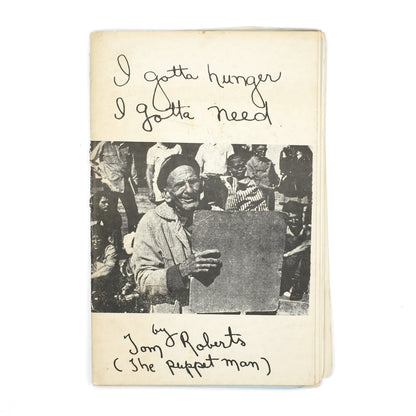 I gotta hunger
I gotta need
by
Tom Roberts
(The puppet man)